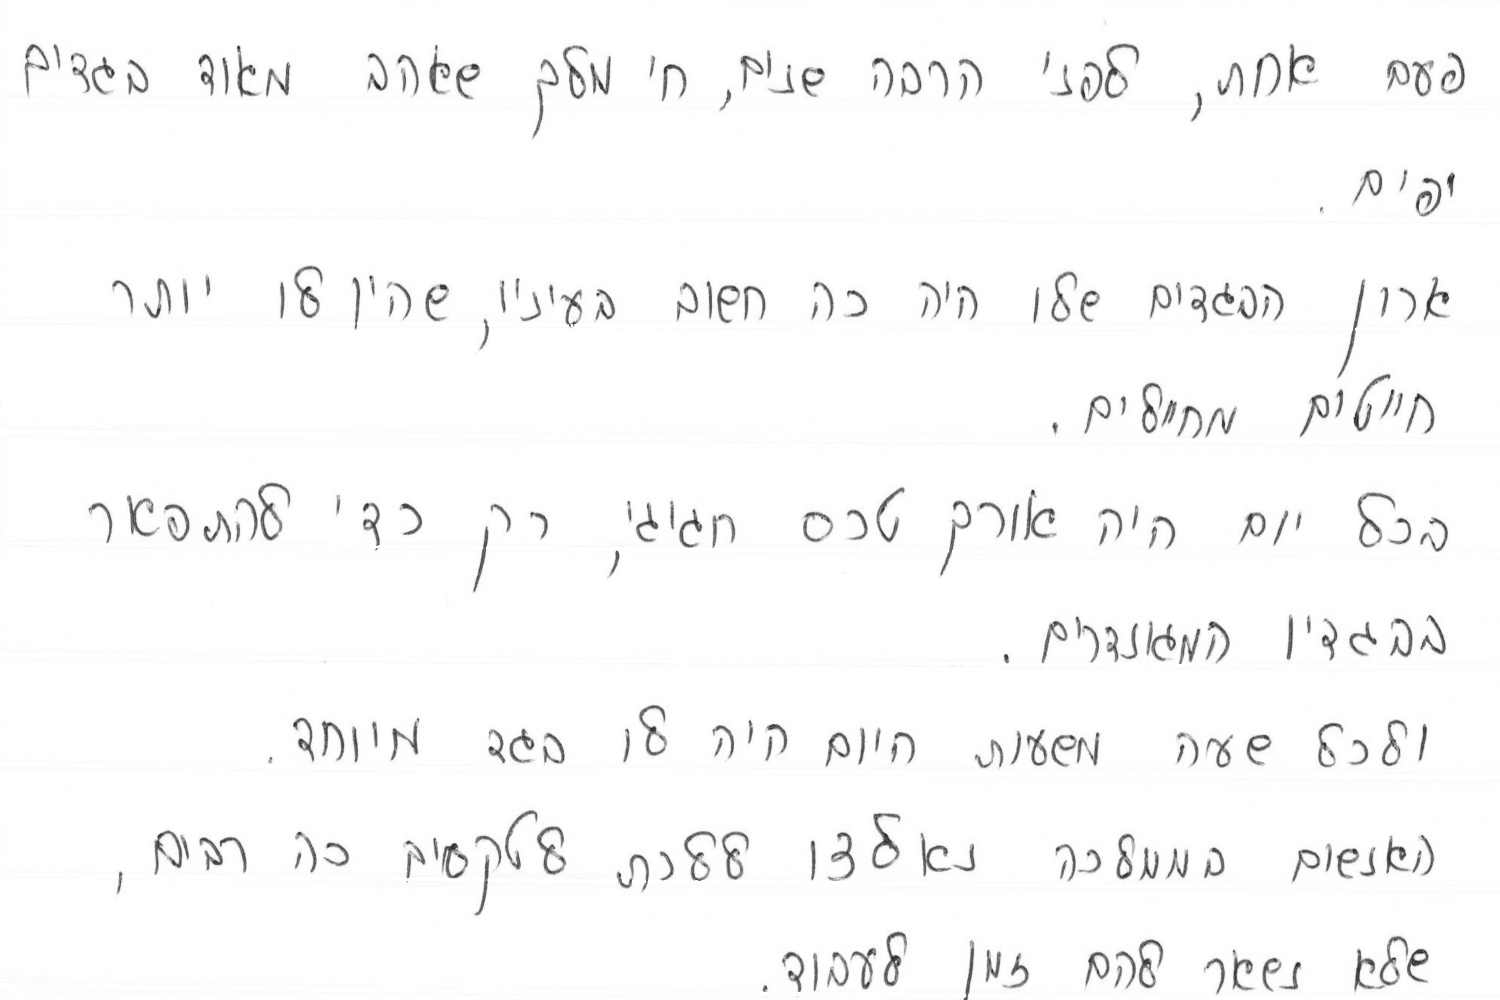 פעם אחת, לפני הרבה שנים, חי מלך שאהב מאוד בגדים
יפים.
ארון הבגדים שלו היה כה חשוב בעיניו, שהיו לו יותר
חייטים מחיילים.
בכל יום היה אורך טכס חגיגי, רק כדי להתפאר
בבגדיו המגונדרים.
ולכל שעה משעות היום היה לו בגד מיוחד.
האנשים בממלכה נאלצו ללכת לטקסים כה רבים,
שלא נשאר להם זמן לעבוד.